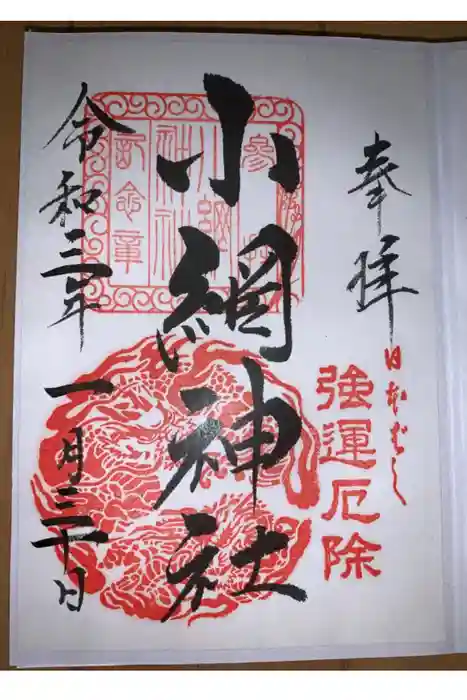 奉拝
日本ばし
強運厄除
小網神社
令和三年
一月三十日
参拝
小網
神社
記念章